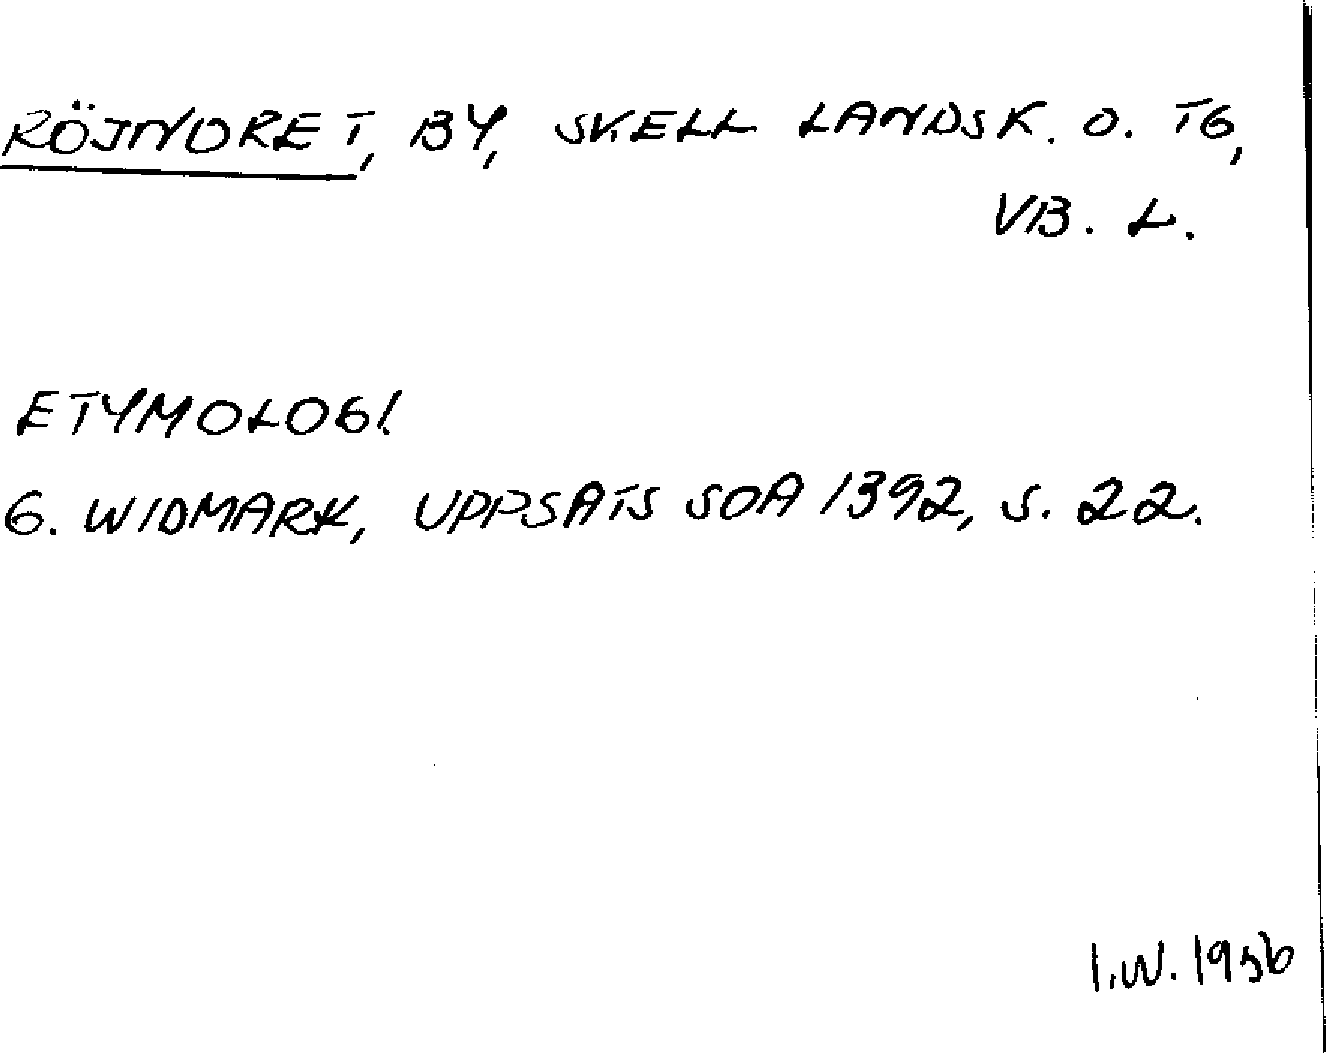 RÖJNORET, BY, SKELL LANDSK. O. TG,
VB. L.
ETYMOLOGI.
G. WIDMARK, UPPSATS SOA 1392, S. 22.
I.W. 1956